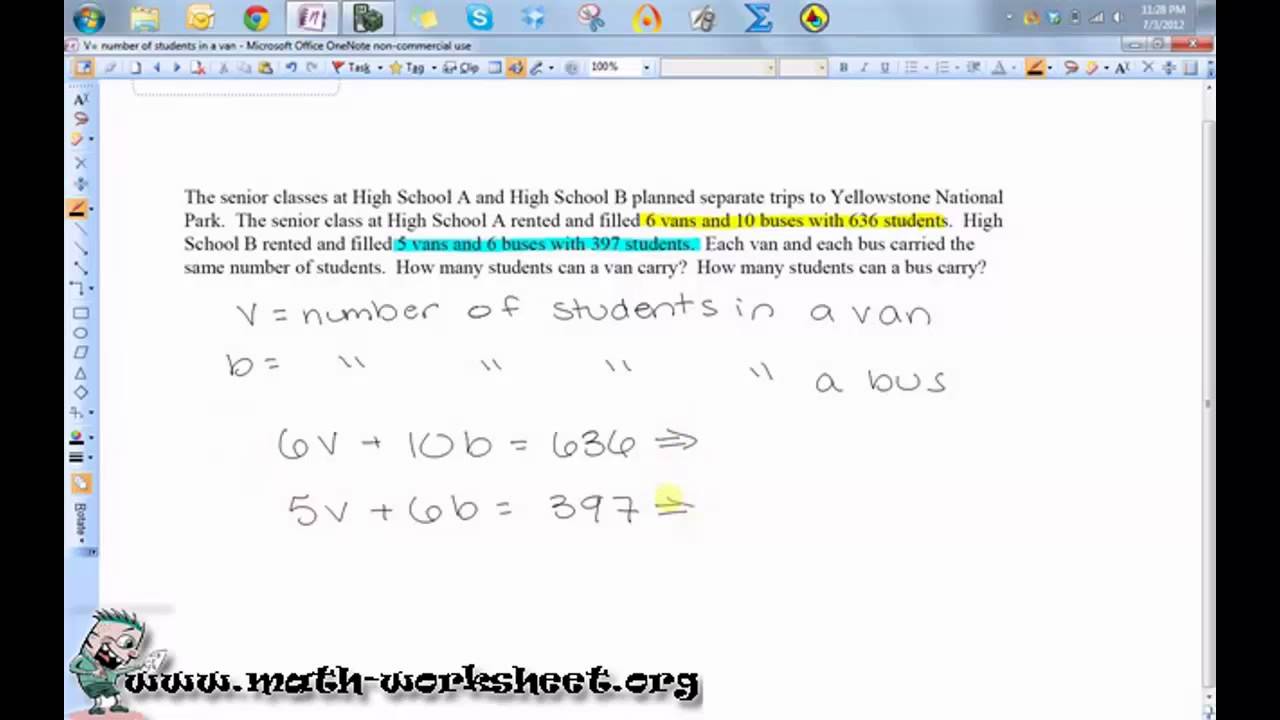 11:28 PM
7/3/2012
V= number of students in a van - Microsoft Office OneNote non-commercial use
Task Tag Clip 100% B I U
The senior classes at High School A and High School B planned separate trips to Yellowstone National
Park. The senior class at High School A rented and filled 6 vans and 10 buses with 636 students. High
School B rented and filled 5 vans and 6 buses with 397 students. Each van and each bus carried the
same number of students. How many students can a van carry? How many students can a bus carry?
v = number of students in a van
b = " " " " a bus
6v + 10b = 636 ⇒
5v + 6b = 397 ⇒
Rotate
www.math-worksheet.org